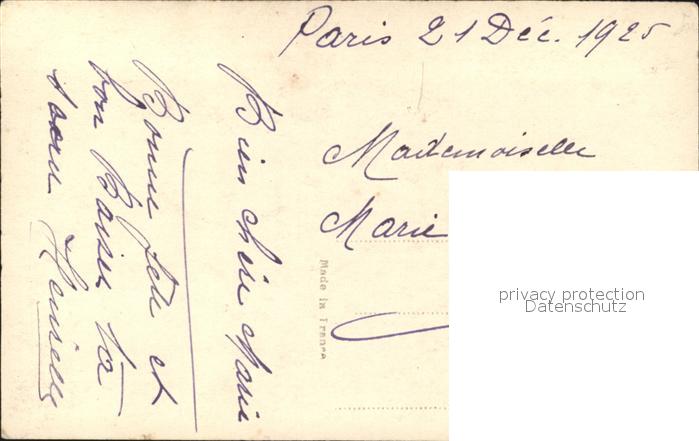 Paris 21 Déc. 1925
Mademoiselle
Marie
Made in France
privacy protection
Datenschutz
Bien chère Marie
Bonne fête et
bon Baiser ta